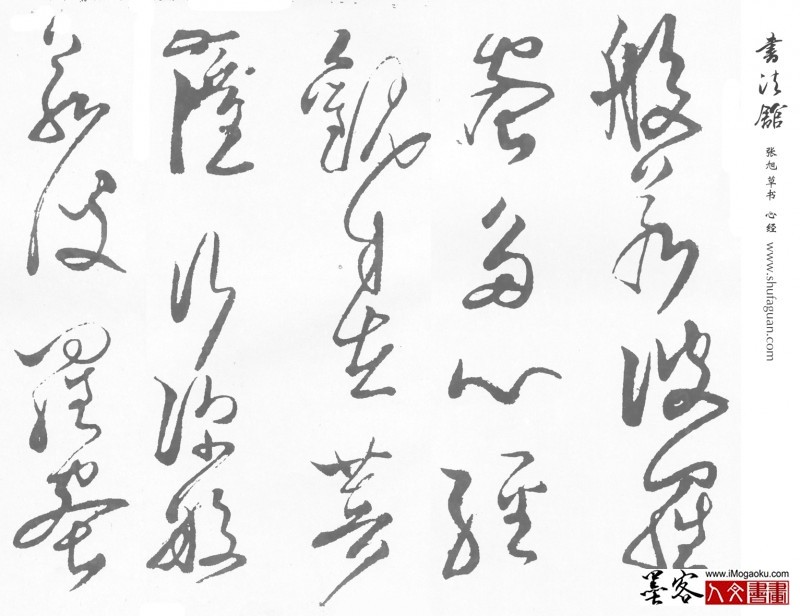 般若波羅
蜜多心經
觀自在菩
薩行深般
若波羅蜜
书法馆
张旭草书 心经 www.shufaguan.com
墨客 www.iMogaoku.com
人文書畫